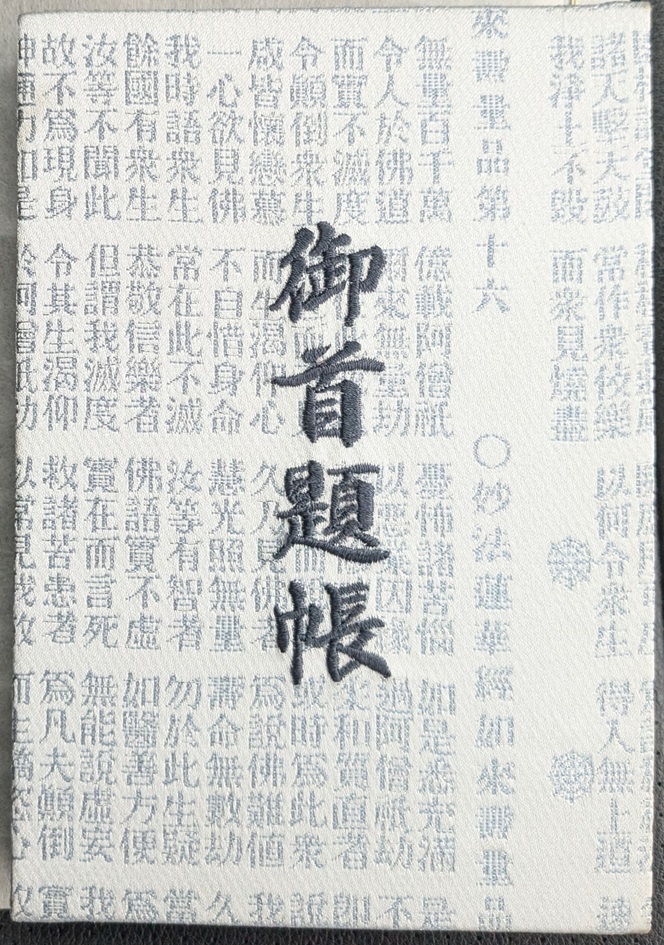 御首題帳
諸天擊天鼓 常作衆伎樂 以何令衆生 得入無上道 速
我淨土不毀 而衆見燒盡
來壽量品第十六 ○妙法蓮華經如來壽量品
無量百千萬 億載阿僧祇 憂怖諸苦惱 如是悉充滿 是
令人於佛道 爾來無量劫 以惡業因緣 過阿僧祇劫 不
而實不滅度 柔和質直者 即
令顛倒衆生 或時爲此衆 說
咸皆懷戀慕 而生渴仰心 久乃見佛者 爲說佛難値 我
一心欲見佛 不自惜身命 慧光照無量 壽命無數劫 久
我時語衆生 常在此不滅 汝等有智者 勿於此生疑 當
餘國有衆生 恭敬信樂者 佛語實不虛 如醫善方便 爲
汝等不聞此 但謂我滅度 實在而言死 無能說虛妄 我
故不爲現身 令其生渴仰 救諸苦患者 爲凡夫顛倒 實
神通力如是 於阿僧祇劫 以常見我故 而生憍恣心 放